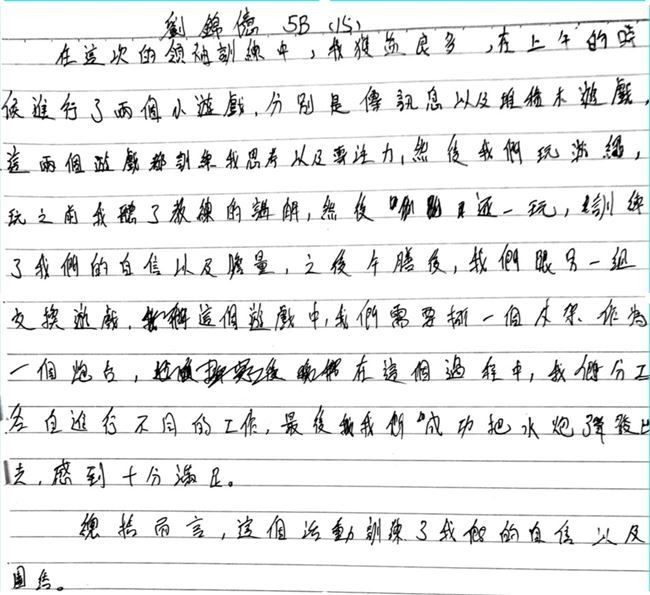 劉錦億 5B (15)
在這次的領袖訓練中，我獲益良多，在上午的時
候進行了兩個小遊戲，分別是傳訊息以及堆積木遊戲，
這兩個遊戲都訓練我思考以及專注力，然後我們玩游繩，
玩之前我聽了教練的講解，然後逐一玩，訓練
了我們的自信以及膽量，之後午膳後，我們跟另一組
交換遊戲，這個遊戲中，我們需要一個木架，作為
一個炮台，在這個過程中，我們分工
各自進行不同的工作，最後我們成功把水炮彈發出
去，感到十分滿足。
總括而言，這個活動訓練了我們的自信以及
團結。